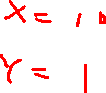 X = 10
Y = 1